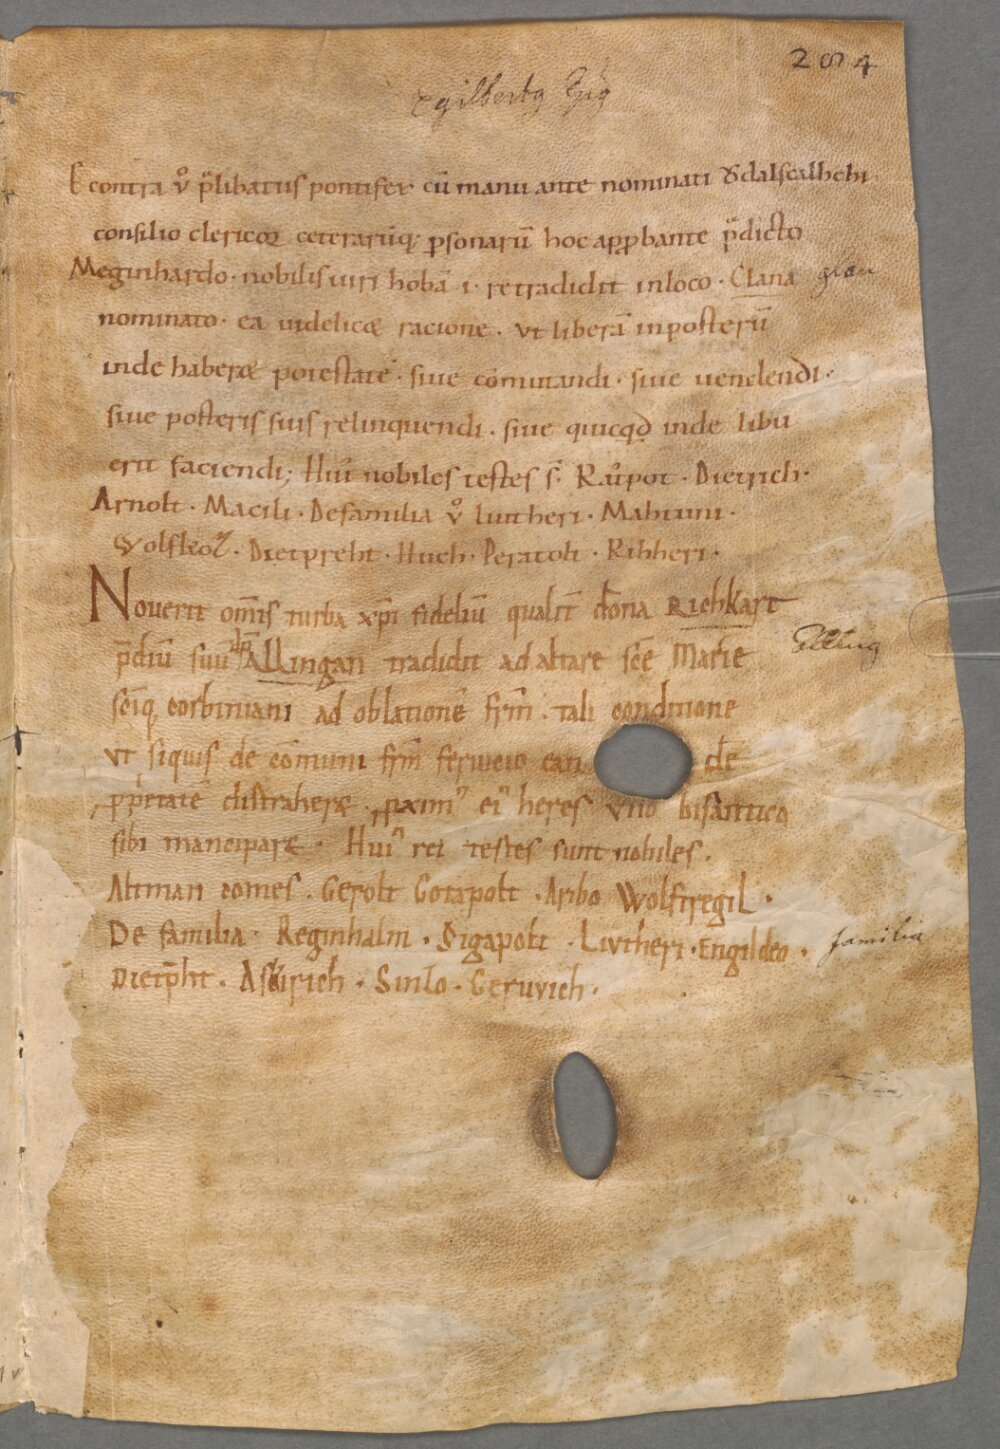 284
egilbertg Epg
E contra v̊ p̄libatus pontifex cū manu ante nominati Ǒdalscalhchi
consilio clericoꝝ ceterarūq; psonarū hoc apꝓbante p̄dicto
Meginhardo · nobilis uiri hobā · i · retradidit in loco · Clana glan
nominato · ea uidelicæ racione · vt liberā inposterū
inde haberæ potestatē · siue cōmutandi · siue uenclendi ·
siue posteris suis relinquendi · siue quicqd inde libu
erit faciendi; Hui' nobiles testes s̄ · Rǎpot · Dietrich ·
Arnolt · Macili · De familia v̊ liutheri · Mahtuni ·
Wolfkoz · Dietpreht · Huch · Peratolt · Rihheri ·
Nouerit om̄is turba xp̄i fideliū qualit̄ dōna Richkart
p̄diū suū Allingan tradidit ad altare scē Marie Alling
sc̄iq, corbiniani ad oblationē frm̄ · tali conditione
vt siquis de cōmuni frm̄ seruicio ean de
ꝓprietatē distraheræ · ꝓxim' ei' heres vno bisantico
sibi manciparæ · Hui' rei testes sunt nobiles ·
Altman comes · Gerolt Cotapolt · Aribo Wolfregil ·
De familia · Reginhalm · Sigapolt · Liutheri · Engildeo · familia
Dietp̄ht · Askirich · Sinlo · Ceruuich ·